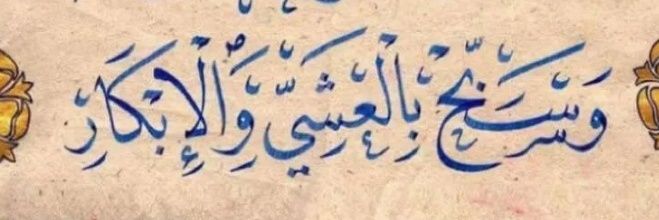 وَسَبِّحْ بِالْعَشِيِّ وَالْإِبْكَارِ